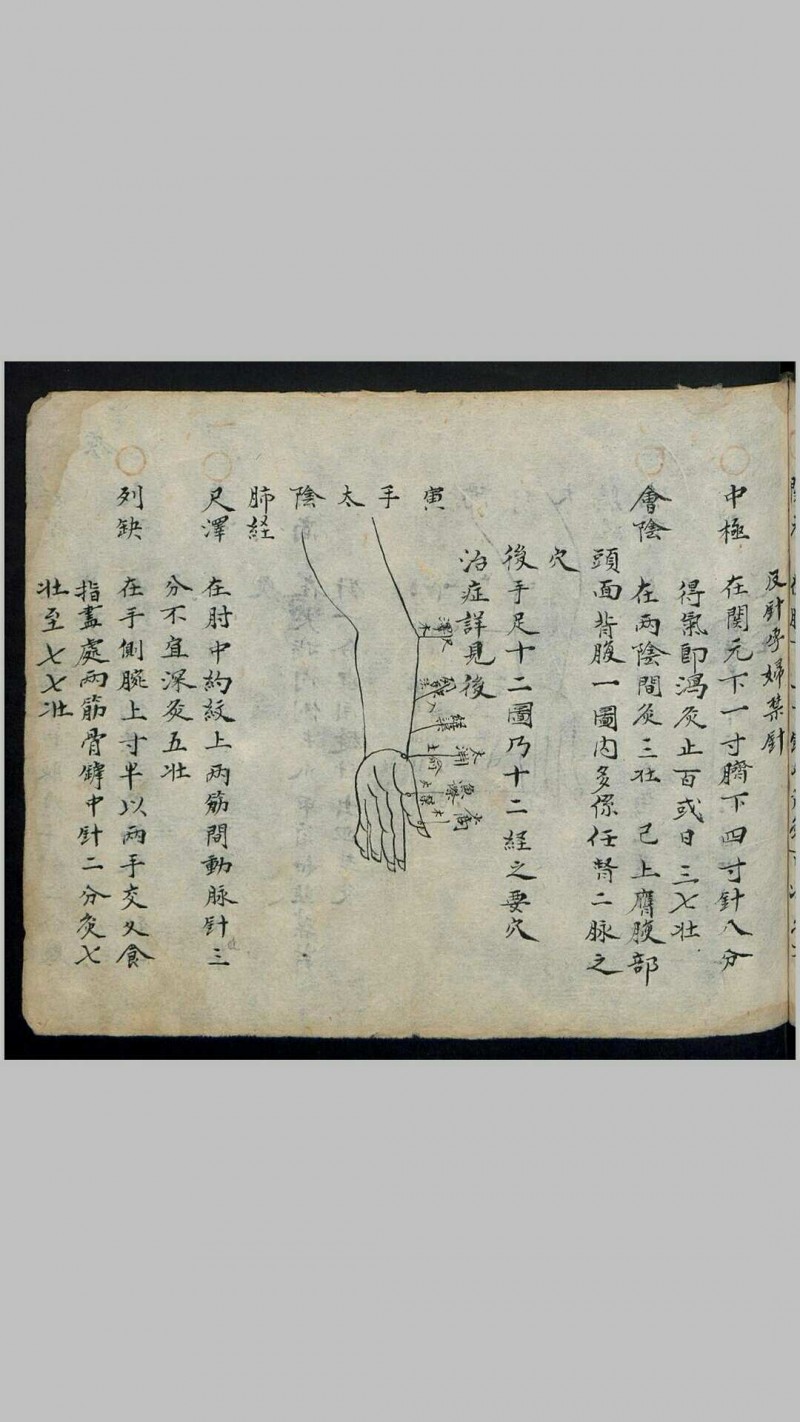 及針孕婦禁針
中極 在関元下一寸臍下四寸針八分
得氣即瀉灸止百或日三七壮
會陰 在兩陰間灸三壮 已上膺腹部
頭面背腹一圖内多係任督二脉之
穴
後手足十二圖乃十二経之要穴
治症詳見後
寅手太陰肺経
尺澤 在肘中約紋上兩筋間動脉針三
分不宜深灸五壮
列缺 在手側腕上寸半以兩手交叉食
指盡處兩筋骨罅中針二分灸七
壮至七七壮